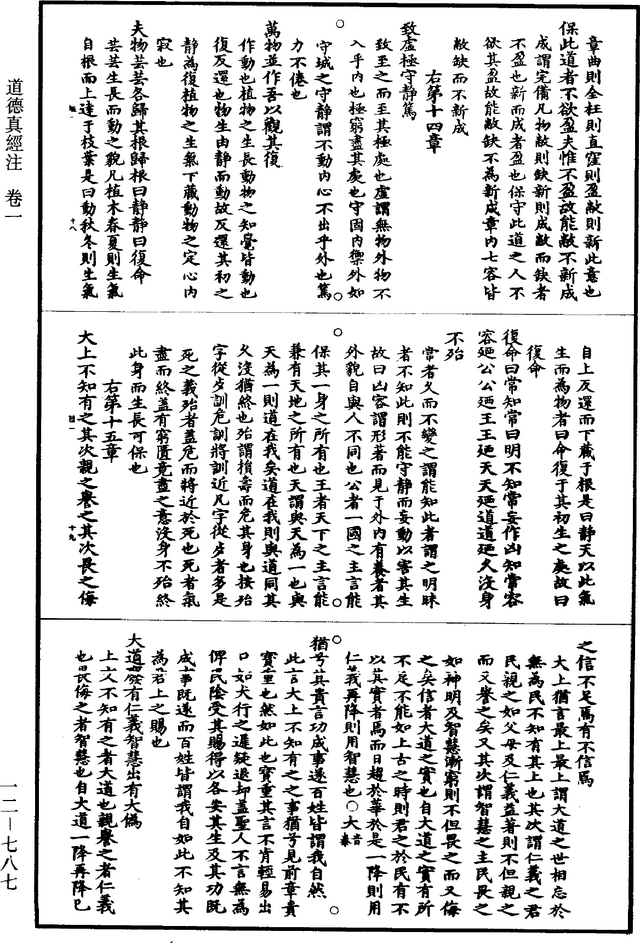 道德真經注　卷一
一二—七八七
章曲則全枉則直窪則盈敝則新此意也
保此道者不欲盈夫惟不盈故能敝不新成
成謂完備凡物敝則缺新則成敝而缺者
不盈也新而成者盈也保守此道之人不
欲其盈故能敝缺不為新成章內七容皆
敝缺而不新成
右第十四章
致虛極守靜篤
致至之而至其極處也虛謂無物外物不
入乎內也極窮盡其處也守固內禦外如
守城之守靜謂不動內心不出乎外也篤
力不倦也
萬物並作吾以觀其復
作動也植物之生長動物之知覺皆動也
復反還也物生由靜而動故反還其初之
靜為復植物之生氣下藏動物之定心內
寂也
夫物芸芸各歸其根歸根曰靜靜曰復命
芸芸生長而動之貌凡植木春夏則生氣
自根而上達于枝葉是曰動秋冬則生氣
十八
自上反還而下藏于根是曰靜天以此氣
生而為物者曰命復于其初生之處故曰
復命
復命曰常知常曰明不知常妄作凶知常容
容廼公公廼王王廼天天廼道道廼久沒身
不殆
常者久而不變之謂能知此者謂之明昧
者不知此則不能守靜而妄動以害其生
故曰凶容謂形著而見于外內有養者其
外貌自與人不同也公者一國之主言能
保其一身之所有也王者天下之主言能
兼有天地之所有也天謂與天為一也與
天為一則道在我矣道在我則與道同其
久沒猶終也殆謂損壽而危其身也按殆
字從歺訓危訓將訓近凡字從歺者多是
死之義殆者蓋危而將近於死也死者氣
盡而終蓋有窮匱竟盡之意沒身不殆終
此身而生長可保也
右第十五章
大上不知有之其次親之譽之其次畏之侮
十九
之信不足焉有不信焉
大上猶言最上最上謂大道之世相忘於
無為民不知有其上也其次謂仁義之君
民親之如父母及仁義益著則不但親之
而又譽之矣又其次謂智慧之主民畏之
如神明及智慧漸窮則不但畏之而又侮
之矣信者大道之實也自大道之實有所
不足不能如上古之時則君之於民有不
以其實者焉而日趨於華於是一降則用
仁義再降則用智慧也○大音泰
猶兮其貴言功成事遂百姓皆謂我自然
此言大上不知有之之事猶兮見前章貴
寶重也然如此也寶重其言不肯輕易出
口如犬行之遲疑退却蓋聖人不言無為
俾民陰受其賜得以各安其生及其功既
成事既遂而百姓皆謂我自如此不知其
為君上之賜也
大道廢有仁義智慧出有大偽
上文不知有之者大道也親譽之者仁義
也畏侮之者智慧也自大道一降再降已